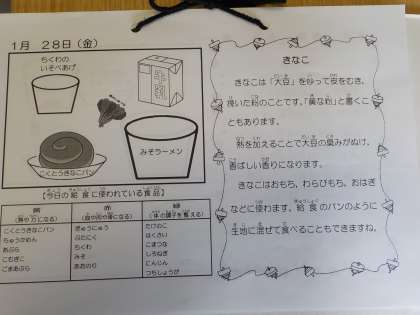 1月 28日(金)
ちくわの
いそべあげ
こくとうきなこパン
みそラーメン
【今日の給食に使われている食品】
黄
(熱や力になる)
赤
(血や肉や骨になる)
緑
(体の調子を整える)
こくとうきなこパン
ぎゅうにゅう
たけのこ
ちゅうかめん
ぶたにく
はくさい
あぶら
ちくわ
こまつな
こむぎこ
みそ
しろねぎ
ごまあぶら
あおのり
にんじん
つちしょうが
きなこ
きなこは「大豆」を炒って皮をむき、
挽いた粉のことです。「黄な粉」と書くこ
ともあります。
熱を加えることで大豆の臭みがぬけ、
香ばしい香りになります。
きなこはおもち、わらびもち、おはぎ
などに使わます。給食のパンのように
生地に混ぜて食べることもできますね。